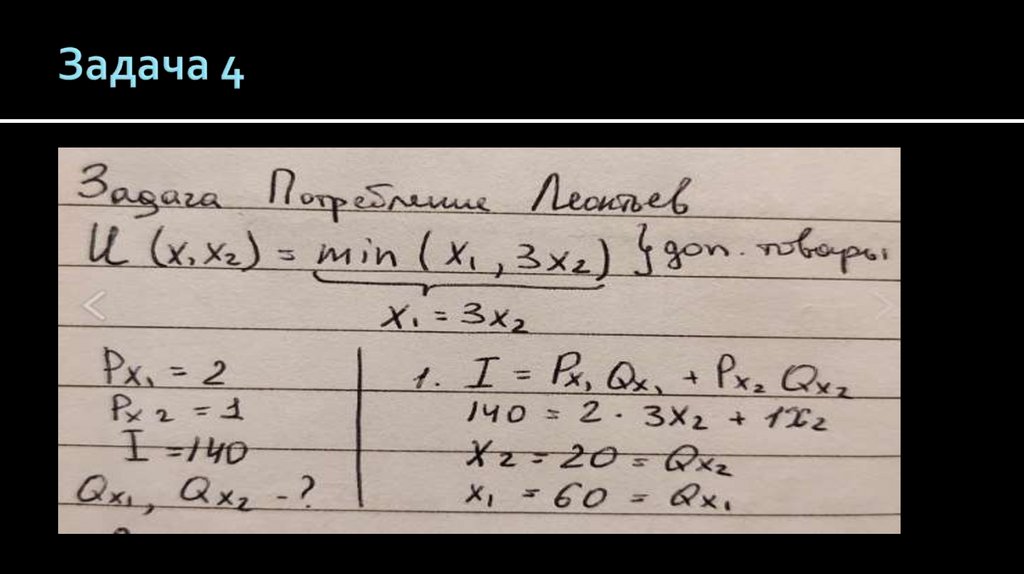 Задача 4
Задача Потребление Леонтьев
U (x₁x₂) = min ( x₁ , 3x₂ ) } доп. товары
x₁ = 3x₂
Px₁ = 2
Px₂ = 1
I = 140
Qx₁, Qx₂ - ?
1. I = Px₁ Qx₁ + Px₂ Qx₂
140 = 2 · 3x₂ + 1x₂
x₂ = 20 = Qx₂
x₁ = 60 = Qx₁